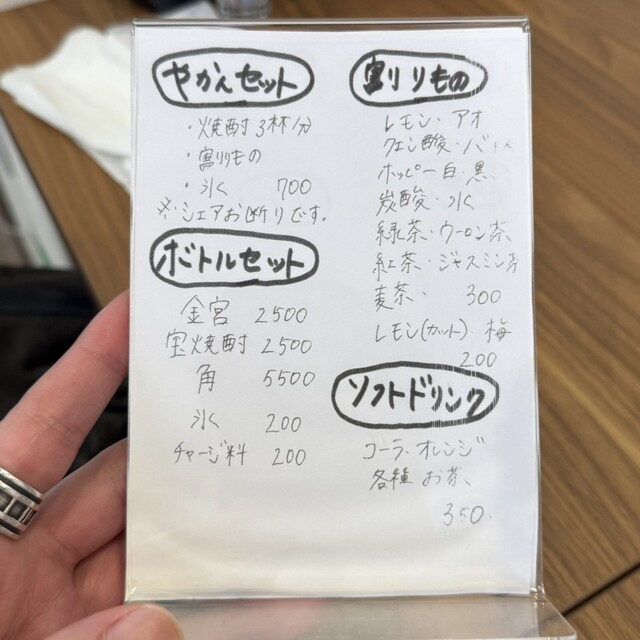 やかんセット
・焼酎3杯分
・割りもの
・氷 700
※シェアお断りです。
ボトルセット
金宮 2500
宝焼酎 2500
角 5500
氷 200
チャージ料 200
割りもの
レモン・アオ
クエン酸・バイス
ホッピー白・黒、
炭酸・氷
緑茶・ウーロン茶、
紅茶・ジャスミン茶
麦茶・ 300
レモン(カット)・梅
200
ソフトドリンク
コーラ、オレンジ
各種お茶、
350.